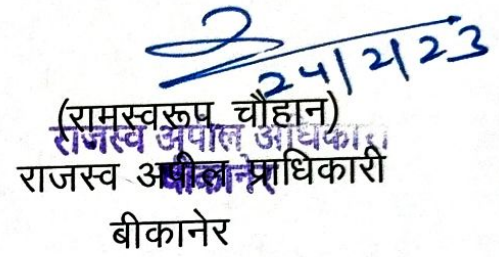 24/2/23
(रामस्वरूप चौहान)
राजस्व अपील अधिकारी
राजस्व अपील प्राधिकारी
बीकानेर
बीकानेर